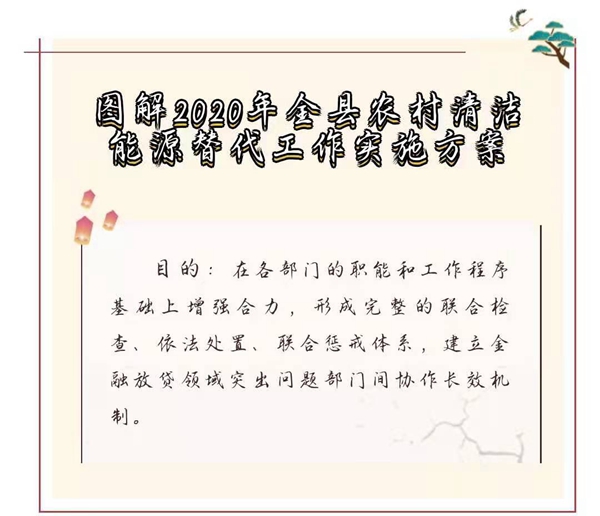 图解2020年全县农村清洁
能源替代工作实施方案
目的：在各部门的职能和工作程序
基础上增强合力，形成完整的联合检
查、依法处置、联合惩戒体系，建立金
融放贷领域突出问题部门间协作长效机
制。